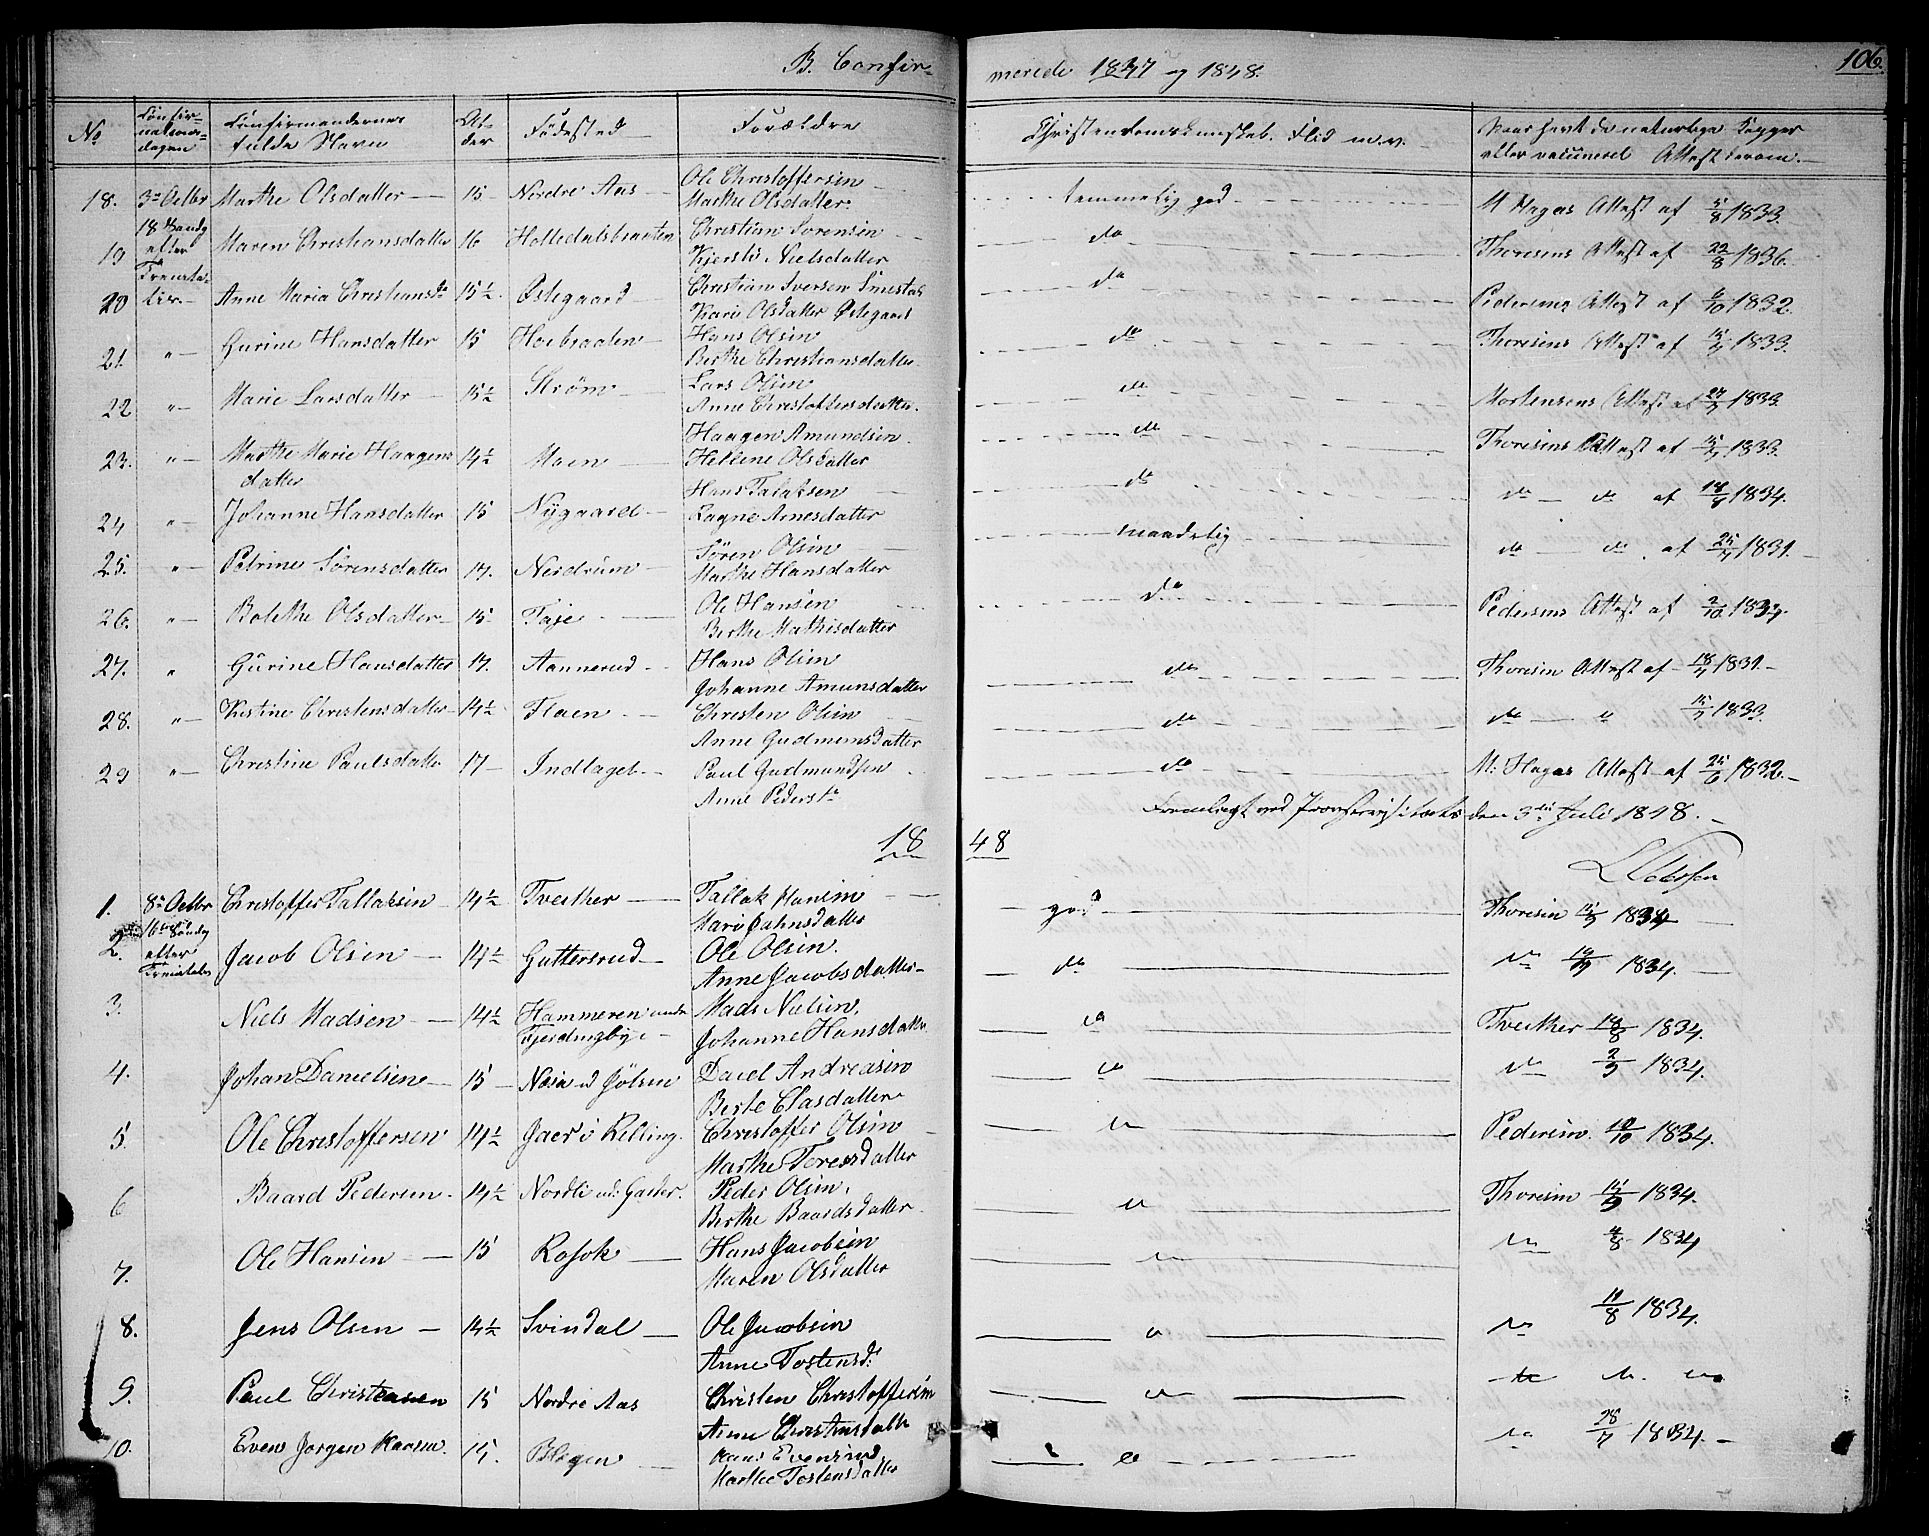 B. Confir-
merede 1847 og 1848.
106.
No
Confir-
mations-
dagen
Confirmandernes
fulde Navn
Al-
der
Fødested
Forældre
Christendomskundskab. Flid m.v.
Naar havt de naturlige Kopper
eller vaccineret Attest derom.
18. 3die Octbr Marthe Olsdatter 15 Nordre Aas Ole Christoffersen
Marthe Olsdatter temmelig god M Hagas Attest af 5/8 1833.
18 Søndg
efter
Trinita-
tis.
19 Maren Christiansdatter 16 Holtedalsbraaten Christian Sørensen
Kjersti Nielsdatter do Thoresens Attest af 22/8 1836.
20 Anne Maria Christiansdr 15½ Østegaard Christian Iversen Smestad
Kari Olsdatter Østegaard do Pedersens Attest af 6/10 1832.
21. " Gurine Hansdatter 15 Hoebraaten Hans Olsen
Berthe Christiansdatter do Thoresens Attest af 15/7 1833.
22 " Marie Larsdatter 15½ Strøm Lars Olsen
Anne Christophersdatter. do Mortensens Attest af 27/7 1833
23. " Marthe Marie Haagens
datter 14½ Moen Haagen Amundsen
Hellene Olsdatter do Thoresens Attest af 15/7 1833.
24 " Johanne Hansdatter 15 Nygaard Hans Talaksen
Ragne Arnesdatter do do do af 18/8 1834.
25. " Petrine Sørensdatter 17. Nerdrum Søren Olsen
Marthe Hansdatter maadelig do do af 25/7 1831.
26. " Bolethe Olsdatter 15 Taje Ole Hansen
Berthe Mathisdatter do Pedersens Attest af 2/10
27. " Gurine Hansdatter 17. Aannerud Hans Olsen
Johanne Amunsdatter do Thoresen Attest af 18/7 1831.
28. " Kristine Christensdatter 14½ Flaen Christen Olsen
Anne Gudmunsdatter do do " 15/7 1833.
29 " Christine Paulsdatter 17 Indlaget Paul Gudmundsen
Anne Pedersdr do M. Hagas Attest af 25/6 1832.
Fremlagt ved Provstevisitats den 3die Juli 1848.
1848
1. 8de Octbr Christoffer Tallaksen 14½ Tvether Tallak Hansen
Mari Jahnsdatter god Thoresen 15/9 1834
16de Søndg
efter
Trinitatis
2. Jacob Olsen 14½ Guttersrud Ole Olsen.
Anne Jacobsdatter do do 1834.
3. Niels Madsen 14½ Hammeren under
Fjerdingbye Mads Nielsen,
Johanne Hansdatter do Tvether 18/8 1834.
4. Johan Danielsen 15 Johan Andreasen
Berte Clasdatter do do 2/9 1834.
5. Ole Christoffersen 14½ Jaer i Relling. Christoffer Olsen
Marthe Toresdatter Pedersen. 12/10 1834.
6 Baard Pedersen 14½ Nordli Peder Olsen,
Berthe Baardsdatter Thoresen 15/9 1834.
7. Ole Hansen 15 Rosok Hans Jacobsen
Maren Olsdatter do 4/8 1834
8. Jens Olsen 14½ Svindal Ole Jacobsen
Anne Tostensd: do 11/8 1834.
9. Paul Christensen 15 Nordre Aas Christen Christoffersen
Anne Christensdatter
10. Even Jørgen Hansen. 15. Hans Evensen
Marthe Tostensdatter do 28/7 1834.